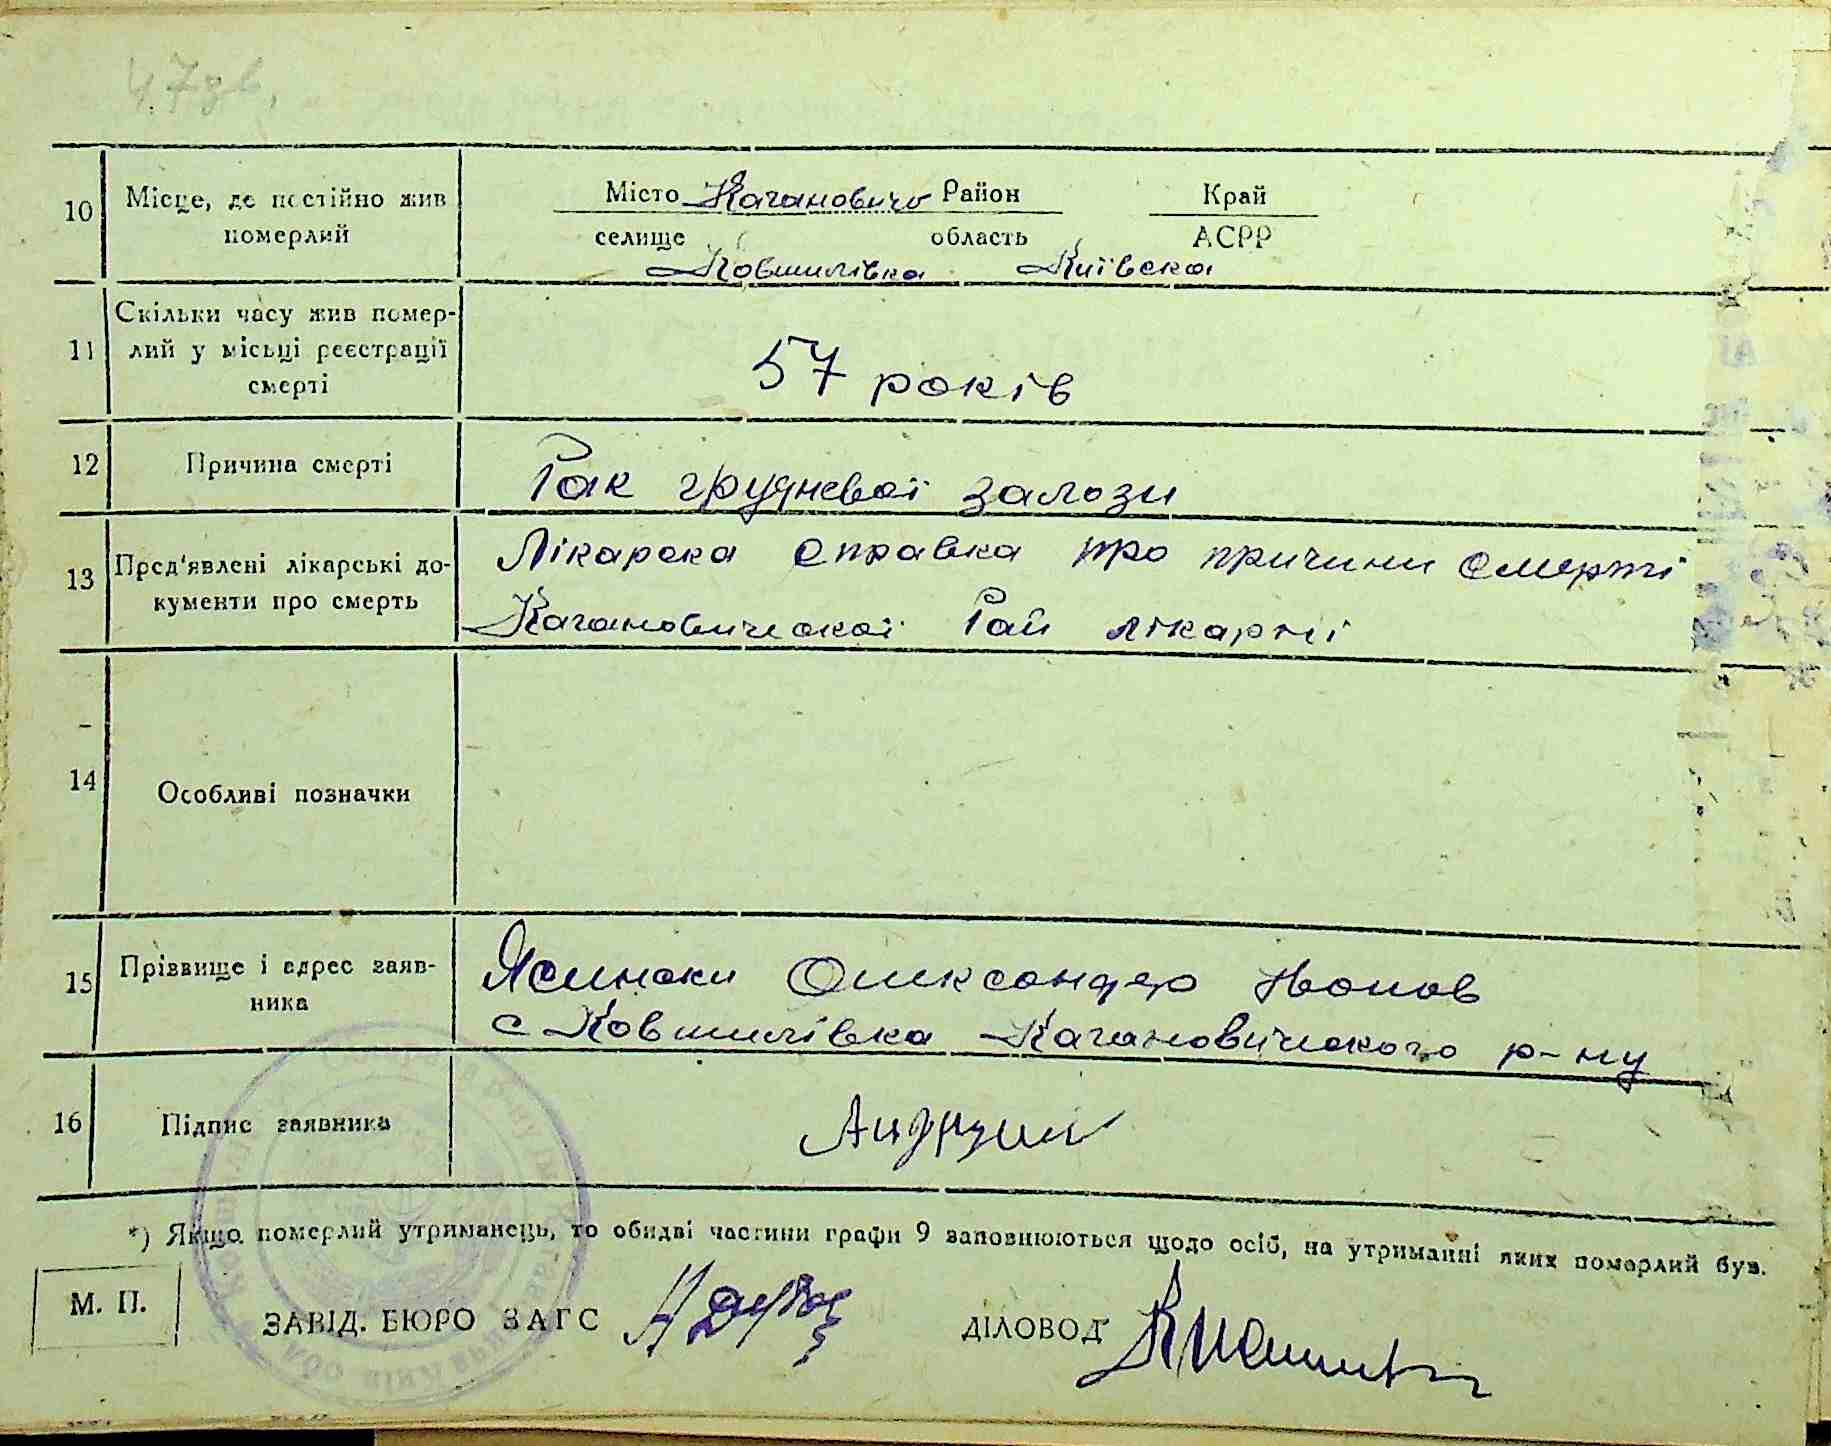 47
10 Місце, де постійно жив померлий
Місто Кагановичо Район Край
селище область АСРР
Ковшилівка Київска
11 Скільки часу жив помер-
лий у місьці реєстрації
смерті
57 років
12 Причина смерті
Рак грудневої залози
13 Пред'явлені лікарські до-
кументи про смерть
Лікарска справка про причини смерті
Кагановичской Рай лікарні
14 Особливі позначки
15 Прізвище і адрес заяв-
ника
Ясински Олександер
с Ковшилівка Кагановичского р-ну
16 Підпис заявника
*) Якщо померлий утриманець, то обидві частини графи 9 заповнюються щодо осіб, на утриманні яких померлий був.
М. П.
ЗАВІД. БЮРО ЗАГС ДІЛОВОД